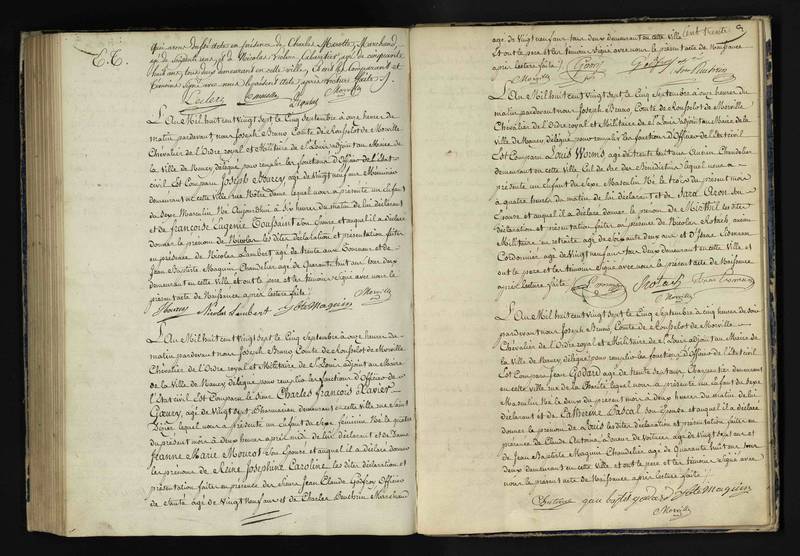 T.T.
Qui nous ont été en présence de Charles Marotte, Marchand
et Nicolas
tous deux demeurant en cette ville, et ont le comparant et
témoins signé avec nous le présent acte, après lecture faite.
Leclerc
Morville
L'An Mil huit cent Vingt sept le Cinq Septembre à onze heures du
matin pardevant nous Joseph Bruno, Comte de Rouffelot de Morville
Chevalier de l'Ordre royal et Militaire de St Louis adjoint au Maire de
la Ville de Nancy, délégué pour remplir les fonctions d'Officier de l'Etat
civil Est Comparu Joseph Hourcy agé de Vingt neuf ans Menuisier
demeurant en cette ville rue Notre Dame lequel nous a présenté un Enfant
du Sexe Masculin Né Aujourd'hui à Six heures du matin de lui déclarant
et de françoise Eugénie Toussaint Son Epouse et auquel il a déclaré
donner le prénom de Nicolas les dites déclaration et présentation faites
en présence de Nicolas Lambert agé de trente ans Tourneur et de
Jean Baptiste Maguin Chandelier agé de Quarante huit ans tous deux
demeurant en cette Ville et ont le pere et les témoins Signé avec nous le
présent acte de Naissance après lecture faite.
Hourcy Nicolas Lambert Jbte Maguin Morville
L'An Mil huit cent Vingt sept le Cinq Septembre à onze heures du
matin pardevant nous Joseph Bruno Comte de Rouffelot de Morville
Chevalier de l'Ordre royal et Militaire de St Louis adjoint au Maire
de la Ville de Nancy délégué pour remplir les fonctions d'Officier de
l'Etat civil Est Comparu le Sieur Charles François Xavier
Gœury, agé de Vingt sept Pharmacien demeurant en cette Ville rue Saint
Dizier, lequel nous a présenté un Enfant de Sexe féminin Né le quatre
du présent mois à deux heures après midi de lui déclarant et de Dame
Jeanne Marie Mourot Son Epouse et auquel il a déclaré donner
les prénoms de Reine Joséphine Caroline les dites déclaration et
présentation faites en présence des Sieurs Jean Claude Godfroy Officier
de Santé agé de Vingt Neuf ans et de Charles Beuchrin Marchand
agé de Vingt neuf ans tous deux demeurant en cette ville Cent trente
Et ont le pere et les témoins Signé avec nous le présent acte de Naissance
après lecture faite.
Morville Gœury Godfroy
L'An Mil huit cent Vingt sept le Cinq Septembre à onze heures du
matin pardevant nous Joseph Bruno, Comte de Rouffelot de Morville
Chevalier de l'Ordre royal et Militaire de St Louis adjoint au Maire de la
Ville de Nancy, délégué pour remplir les fonctions d'Officier de l'Etat civil
Est Comparu Louis Worms agé de trente huit ans Ancien Chandelier
demeurant en cette Ville Cul de Sac des Bénédictins lequel nous a
présenté un Enfant de Sexe Masculin Né le trois du présent mois
à quatre heures du matin de lui déclarant et de Sara Aron Son
Epouse et auquel il a déclaré donner le prénom de Michel les dites
déclaration et présentation faites en présence de Nicolas
Militaire en retraite agé de Soixante deux ans et d'Isaac
Cordonnier agé de Vingt neuf ans tous deux demeurant en cette Ville et
ont le pere et les témoins Signé avec nous le présent acte de Naissance
après lecture faite. L Worms
Morville
L'An Mil huit cent Vingt sept le Cinq Septembre à cinq heures du soir
pardevant nous Joseph Bruno, Comte de Rouffelot de Morville
Chevalier de l'Ordre royal et Militaire de St Louis adjoint au Maire de
la Ville de Nancy délégué pour remplir les fonctions d'Officier de l'Etat civil
Est Comparu Jean Godard agé de trente Sept ans, Charpentier demeurant
en cette ville rue de la Charité lequel nous a présenté un Enfant du Sexe
Masculin Né le deux du présent mois à deux heures du matin de lui
déclarant et de Catherine Pascal Son Epouse et auquel il a déclaré
donner le prénom de Louis les dites déclaration et présentation faites en
présence de Claude Antoine Loueur de Voitures agé de Vingt sept ans et
de Jean Baptiste Maguin Chandelier agé de Quarante huit ans tous
deux demeurant en cette Ville et ont le pere et les témoins Signé avec
nous le présent acte de Naissance après lecture faite.
Antoine godard Jbte Maguin
Morville